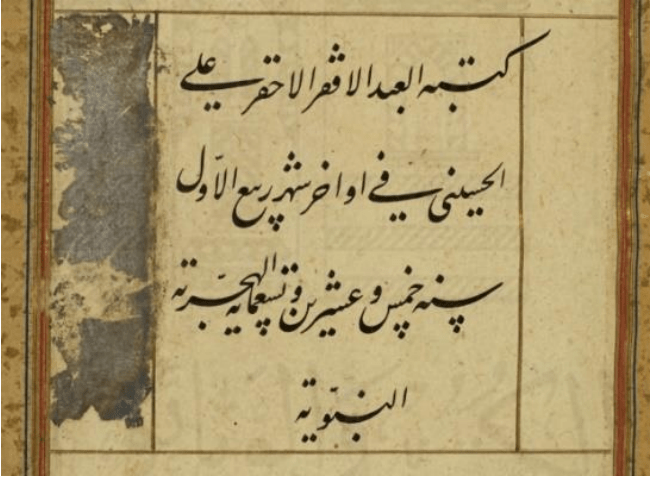 كتبه العبد الافقر الاحقر علي
الحسيني في اواخر شهر ربيع الاوّل
سنه خمس و عشرين و تسعمايه الهجريّة
النبوّية